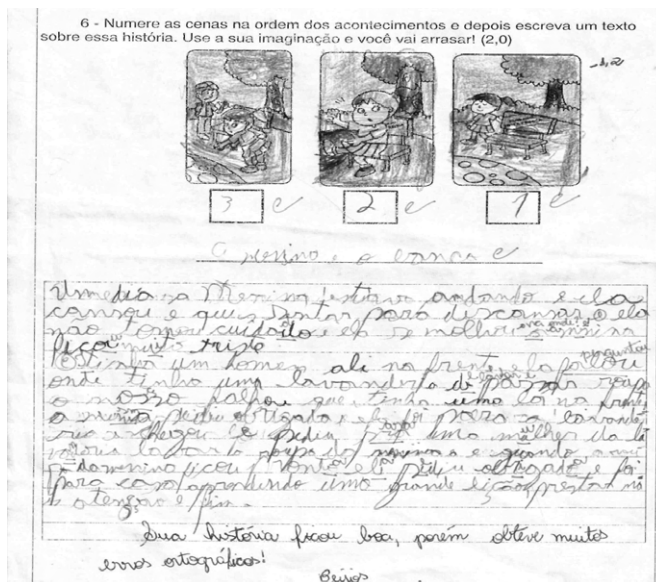 6 - Numere as cenas na ordem dos acontecimentos e depois escreva um texto
sobre essa história. Use a sua imaginação e você vai arrasar! (2,0)
3 2 1
e o
Umedia a Menina estava andando e ela
cansou e quis sentar para descansar e ela
não tomou cuidado e ela se molhou menina
ficou muito triste
tinha um homem ali na frente ela falou perguntou
onde tinha uma lavanderia de passar roupa
o moso falhou que tinha uma la na frente
a menina pediu obrigada foi para a lavande
ria chegou la pediu uma mulher da la
lavar a roupa da menina e quando a rou
da menina ficou pronta ela pediu obrigado e foi
para casa aprendendo uma grande lição prestar mi
a atenção e fim.
Sua história ficou boa, porém obteve muitos
erros ortográficos!
Beijos